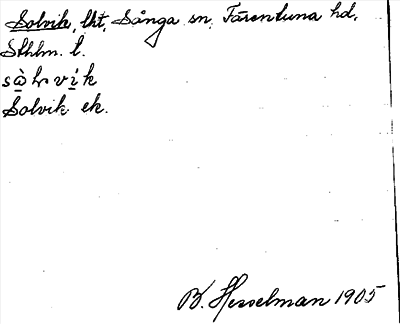 Solvik, lht, Sånga sn. Färentuna hd.
Sthlm. l.
Solvik ek.
B. Hesselman 1905